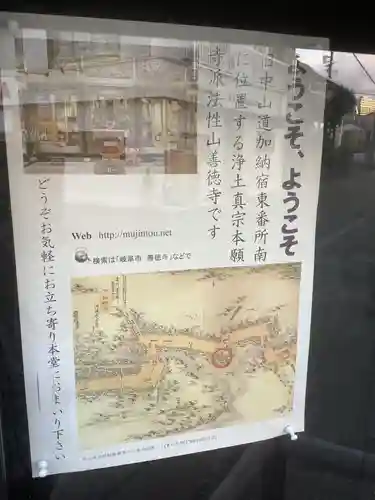 ようこそ、ようこそ
旧中山道加納宿東番所南
に位置する浄土真宗本願
寺派法性山善徳寺です
Web http://mujintou.net
検索は「岐阜市 善徳寺」などで
どうぞお気軽にお立ち寄り本堂にお まいり下さい